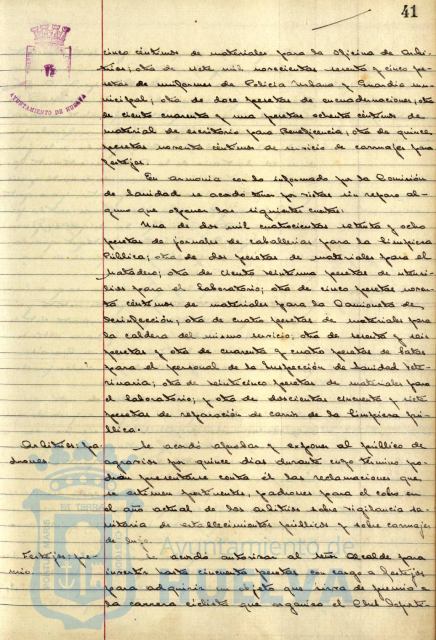 41
AYUNTAMIENTO DE HUELVA
cinco céntimos de materiales para la Oficina de Arbi-
trios; otra de siete mil novecientas sesenta y cinco pe-
setas de uniformes de Policía Urbana y Guardia mu-
nicipal; otra de doce pesetas de encuadernaciones; otra
de ciento cuarenta y una pesetas ochenta céntimos de
material de escritorio para Beneficencia; otra de quince
pesetas noventa céntimos de servicio de carruajes para
festejos.
En armonía con lo informado por la Comisión
de Sanidad se acordó tener por vistas sin reparo al-
guno que oponer las siguientes cuentas:
Una de dos mil cuatrocientas setenta y ocho
pesetas de jornales de caballerías para la limpieza
Pública; otra de dos pesetas de materiales para el
Matadero; otra de ciento veintiuna pesetas de utensi-
lios para el laboratorio; otra de cinco pesetas noven-
ta céntimos de materiales para la Camioneta de
desinfección; otra de cuatro pesetas de materiales para
la caldera del mismo servicio; otra de sesenta y seis
pesetas y otra de cuarenta y cuatro pesetas de batas
para el personal de la Inspección de Sanidad Vete-
rinaria; otra de veinticinco pesetas de materiales para
el laboratorio; y otra de doscientas cincuenta y siete
pesetas de reparación de carros de la limpieza pú-
blica.
Arbitrios: pa-
drones
Se acordó aprobar y exponer al público de
agravios por quince días durante cuyo término po-
drán presentarse contra él las reclamaciones que
se estimen pertinentes, padrones para el cobro en
el año actual de los arbitrios sobre vigilancia sa-
nitaria de establecimientos públicos y sobre carruajes
de lujo.
Festejos: pre-
mio.
Se acordó autorizar al señor Alcalde para
invertir hasta cincuenta pesetas con cargo a festejos
para adquirir un objeto que sirva de premio a
la carrera ciclista que organiza el Club deporti-
Ayuntamiento de
HUELVA